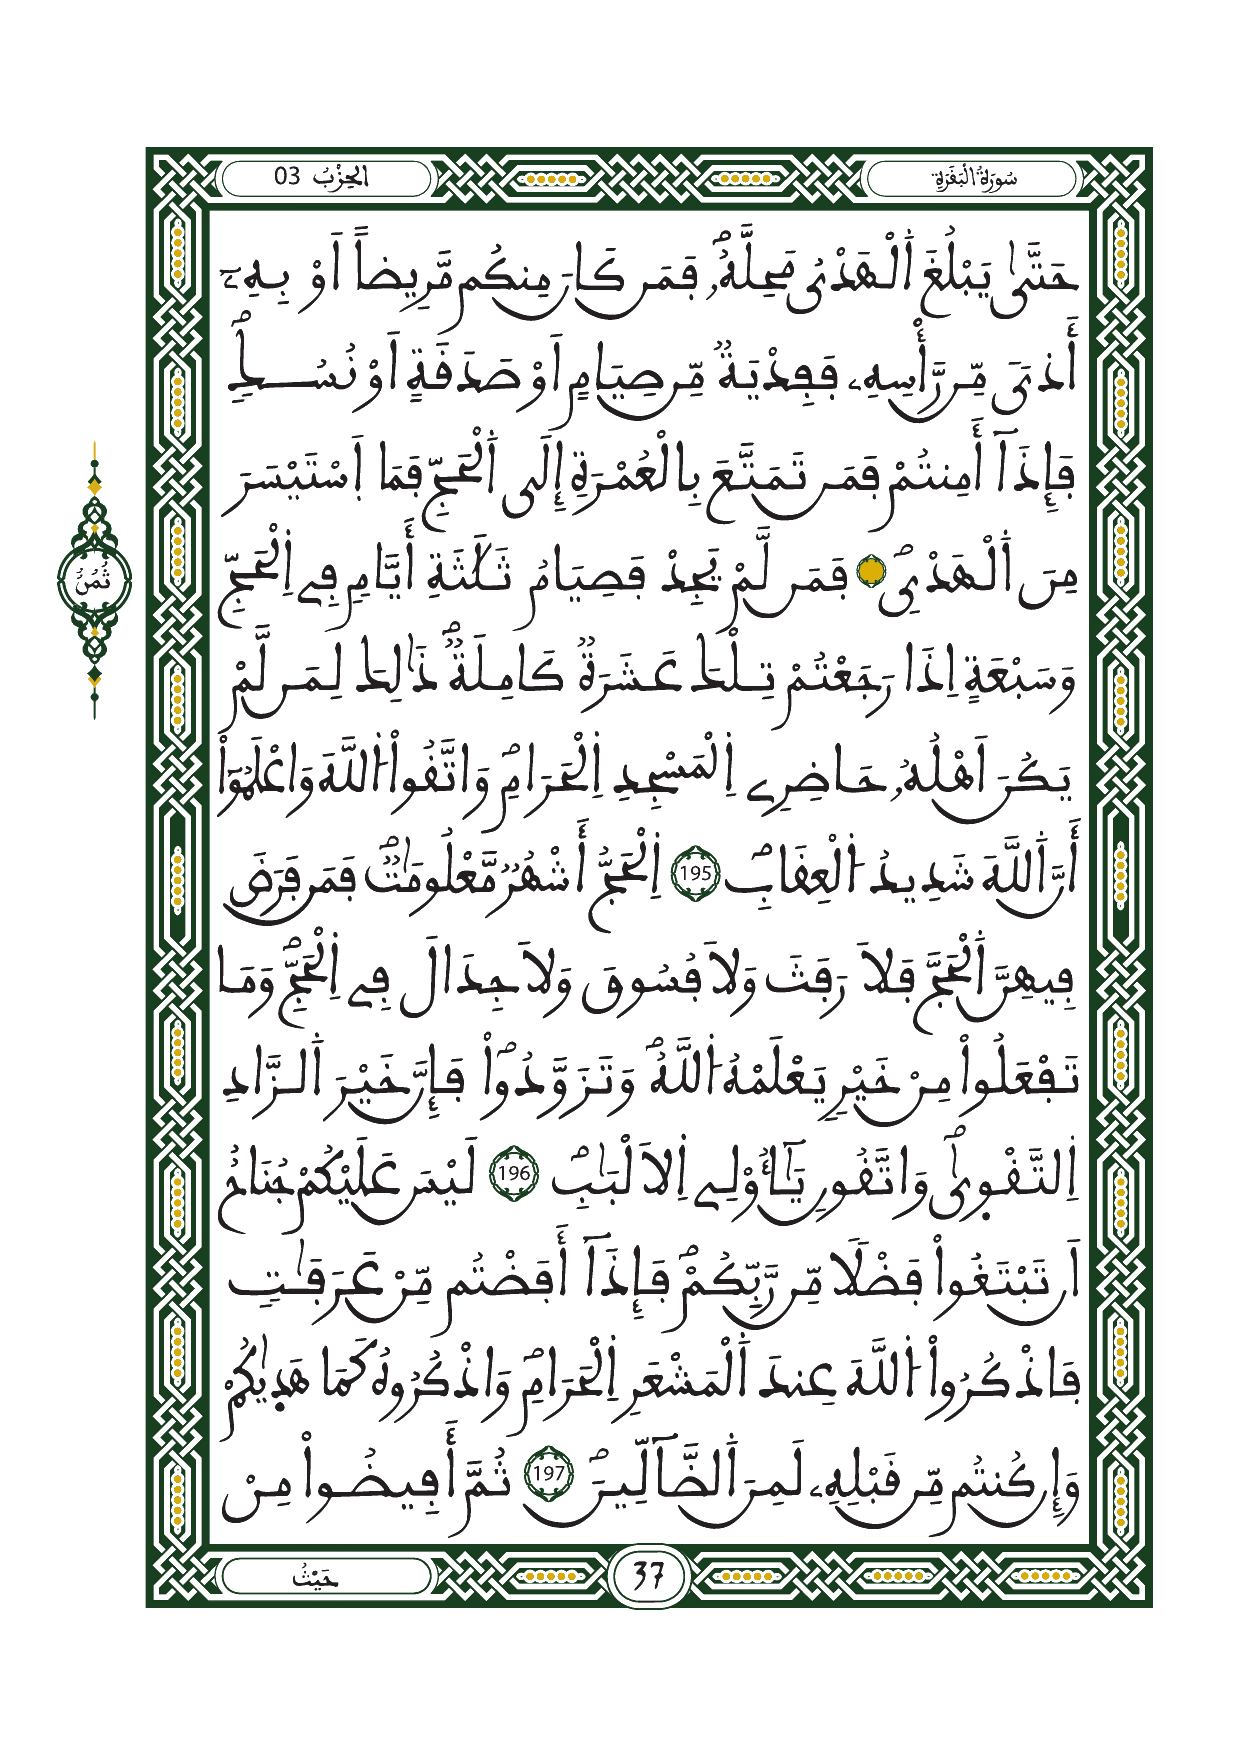 سُورَةُ الْبَقَرَةِ
الحِزْبُ 03
حَتَّىٰ يَبْلُغَ اَ۬لْهَدْيُ مَحِلَّهُۥۖ فَمَن كَانَ مِنكُم مَّرِيضاً اَوْ بِهِۦٓ
أَذىٗ مِّن رَّأْسِهِۦ فَفِدْيَةٞ مِّن صِيَامٍ اَوْ صَدَقَةٍ اَوْ نُسُكٖۖ
فَإِذَآ أَمِنتُمْ فَمَن تَمَتَّعَ بِالْعُمْرَةِ إِلَى اَ۬لْحَجِّ فَمَا اَ۪سْتَيْسَرَ
مِنَ اَ۬لْهَدْيِۖ فَمَن لَّمْ يَجِدْ فَصِيَامُ ثَلَٰثَةِ أَيَّامٖ فِے اِ۬لْحَجِّ
وَسَبْعَةٍ اِذَا رَجَعْتُمْ تِلْكَ عَشَرَةٞ كَامِلَةٞۖ ذَٰلِكَ لِمَن لَّمْ
يَكُنَ اَهْلُهُۥ حَاضِرِے اِ۬لْمَسْجِدِ اِ۬لْحَرَامِۖ وَاتَّقُواْ اُ۬للَّهَ وَاعْلَمُوٓاْ
أَنَّ اَ۬للَّهَ شَدِيدُ اُ۬لْعِقَابِۖ 195 اِ۬لْحَجُّ أَشْهُرٞ مَّعْلُومَٰتٞۖ فَمَن فَرَضَ
فِيهِنَّ اَ۬لْحَجَّ فَلَا رَفَثَ وَلَا فُسُوقَ وَلَا جِدَالَ فِے اِ۬لْحَجِّۖ وَمَا
تَفْعَلُواْ مِنْ خَيْرٖ يَعْلَمْهُ اُ۬للَّهُۖ وَتَزَوَّدُواْۖ فَإِنَّ خَيْرَ اَ۬لزَّادِ
اِ۬لتَّقْو۪يٰۖ وَاتَّقُونِ يَٰٓأُوْلِے اِ۬لَالْبَٰبِۖ 196 لَيْسَ عَلَيْكُمْ جُنَاحٌ
اَن تَبْتَغُواْ فَضْلاٗ مِّن رَّبِّكُمْۖ فَإِذَآ أَفَضْتُم مِّنْ عَرَفَٰتٖ
فَاذْكُرُواْ اُ۬للَّهَ عِندَ اَ۬لْمَشْعَرِ اِ۬لْحَرَامِۖ وَاذْكُرُوهُ كَمَا هَد۪يٰكُمْ
وَإِن كُنتُم مِّن قَبْلِهِۦ لَمِنَ اَ۬لضَّآلِّينَۖ 197 ثُمَّ أَفِيضُواْ مِنْ
ثُمُنُ
حَيْثُ
37